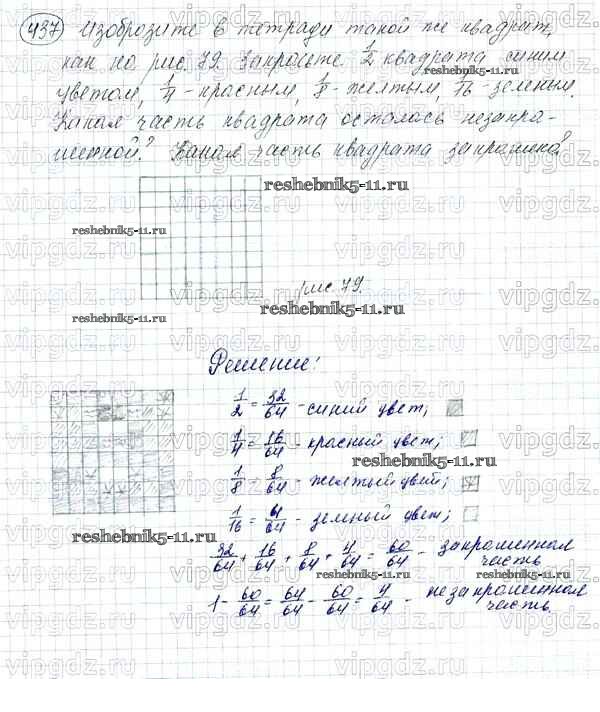 437 Изобразите в тетради такой же квадрат,
как на рис. 79. Закрасьте 1/2 квадрата синим
цветом, 1/4 - красным, 1/8 - желтым, 1/16 - зеленым.
Какая часть квадрата осталась незакра-
шенной? Какая часть квадрата закрашена?
reshebnik5-11.ru
reshebnik5-11.ru
рис. 79.
reshebnik5-11.ru
reshebnik5-11.ru
Решение:
1/2 = 32/64 - синий цвет;
1/4 = 16/64 - красный цвет;
reshebnik5-11.ru
1/8 = 8/64 - желтый цвет;
1/16 = 4/64 - зеленый цвет;
reshebnik5-11.ru
32/64 + 16/64 + 8/64 + 4/64 = 60/64 - закрашенная
часть
reshebnik5-11.ru
1 - 60/64 = 64/64 - 60/64 = 4/64 - незакрашенная
часть.
vipgdz.ru